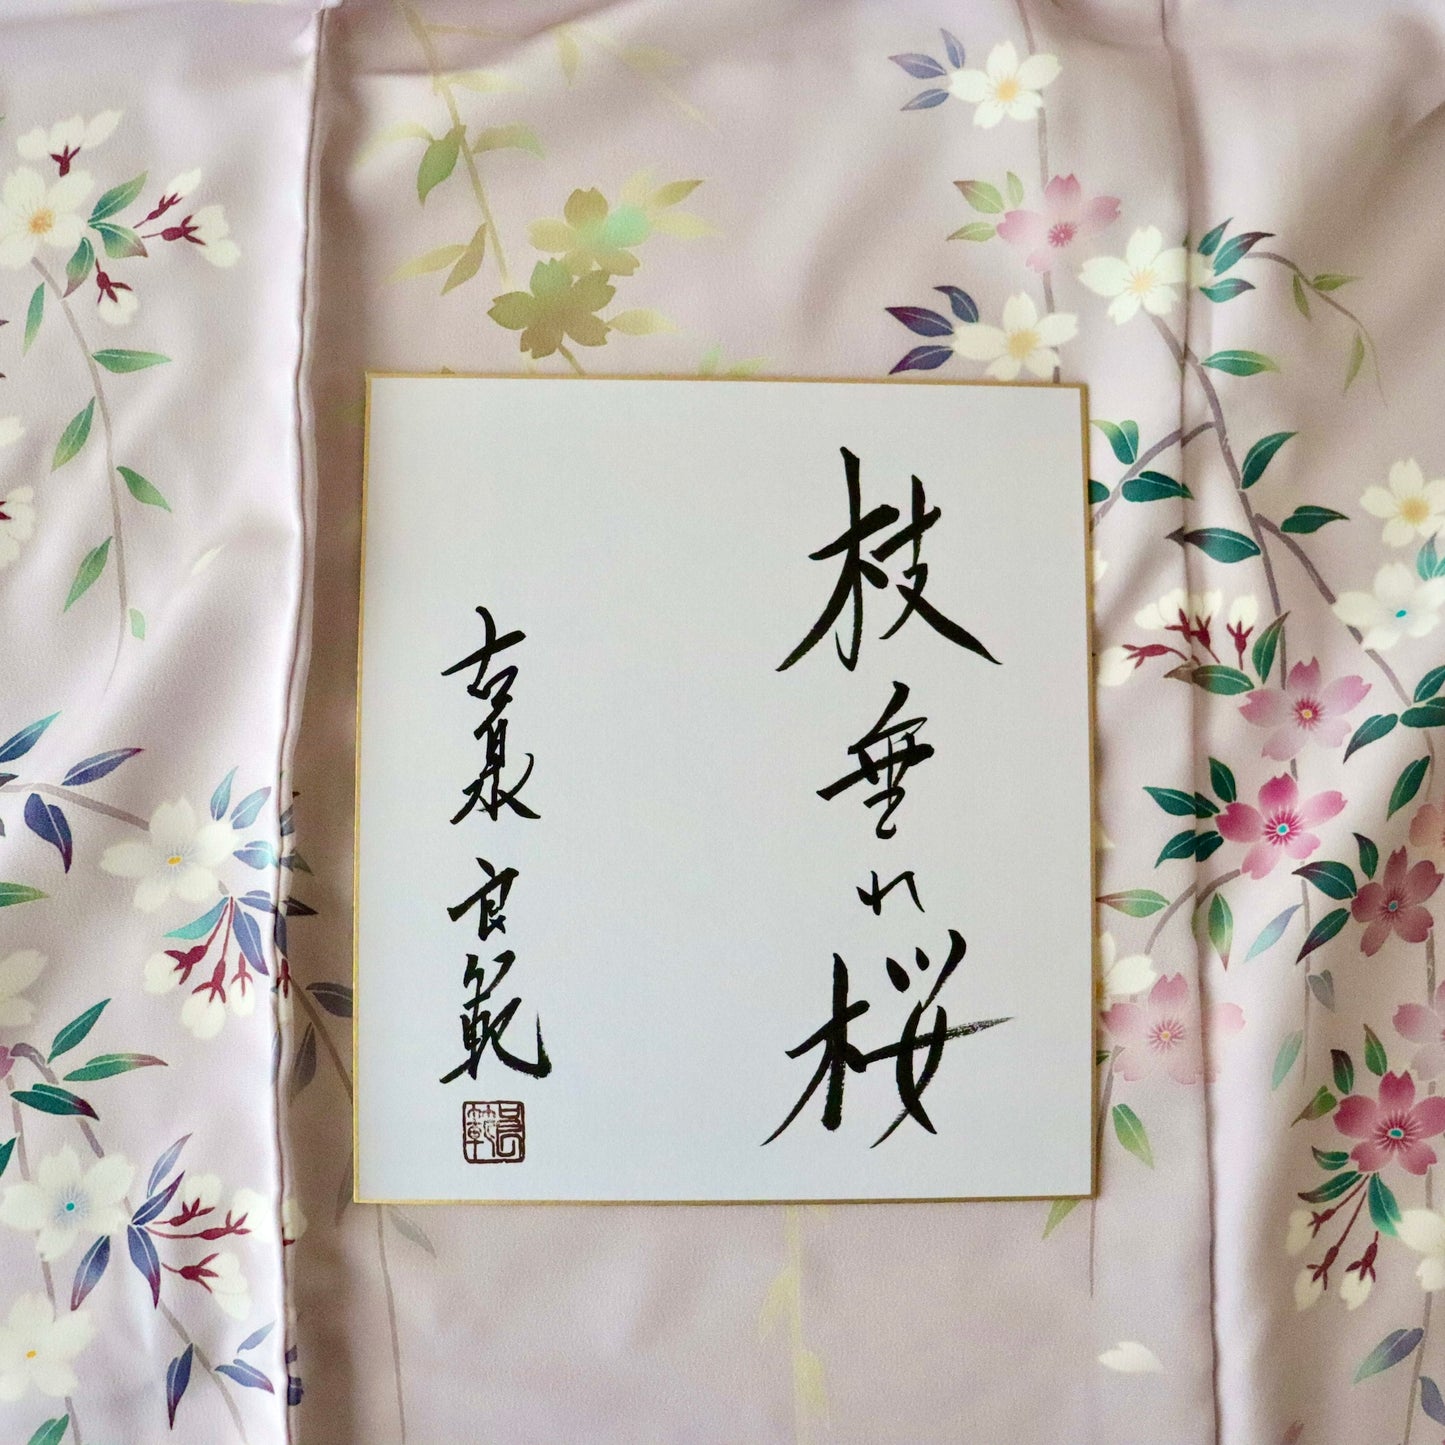 枝垂れ桜
古泉良範
良範